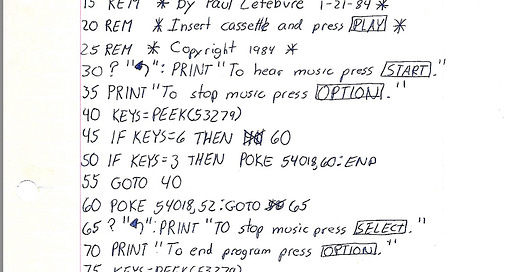 15 REM * by Paul Lefebvre 1-21-84 *
20 REM * Insert cassette and press PLAY *
25 REM * Copyright 1984 *
30 ? "↰": PRINT "To hear music press START."
35 PRINT "To stop music press OPTION."
40 KEYS=PEEK(53279)
45 IF KEYS=6 THEN 60
50 IF KEYS=3 THEN POKE 54018,60:END
55 GOTO 40
60 POKE 54018,52:GOTO 65
65 ? "↰":PRINT "TO stop music press SELECT."
70 PRINT "To end program press OPTION."
75 KEYS=PEEK(53279)